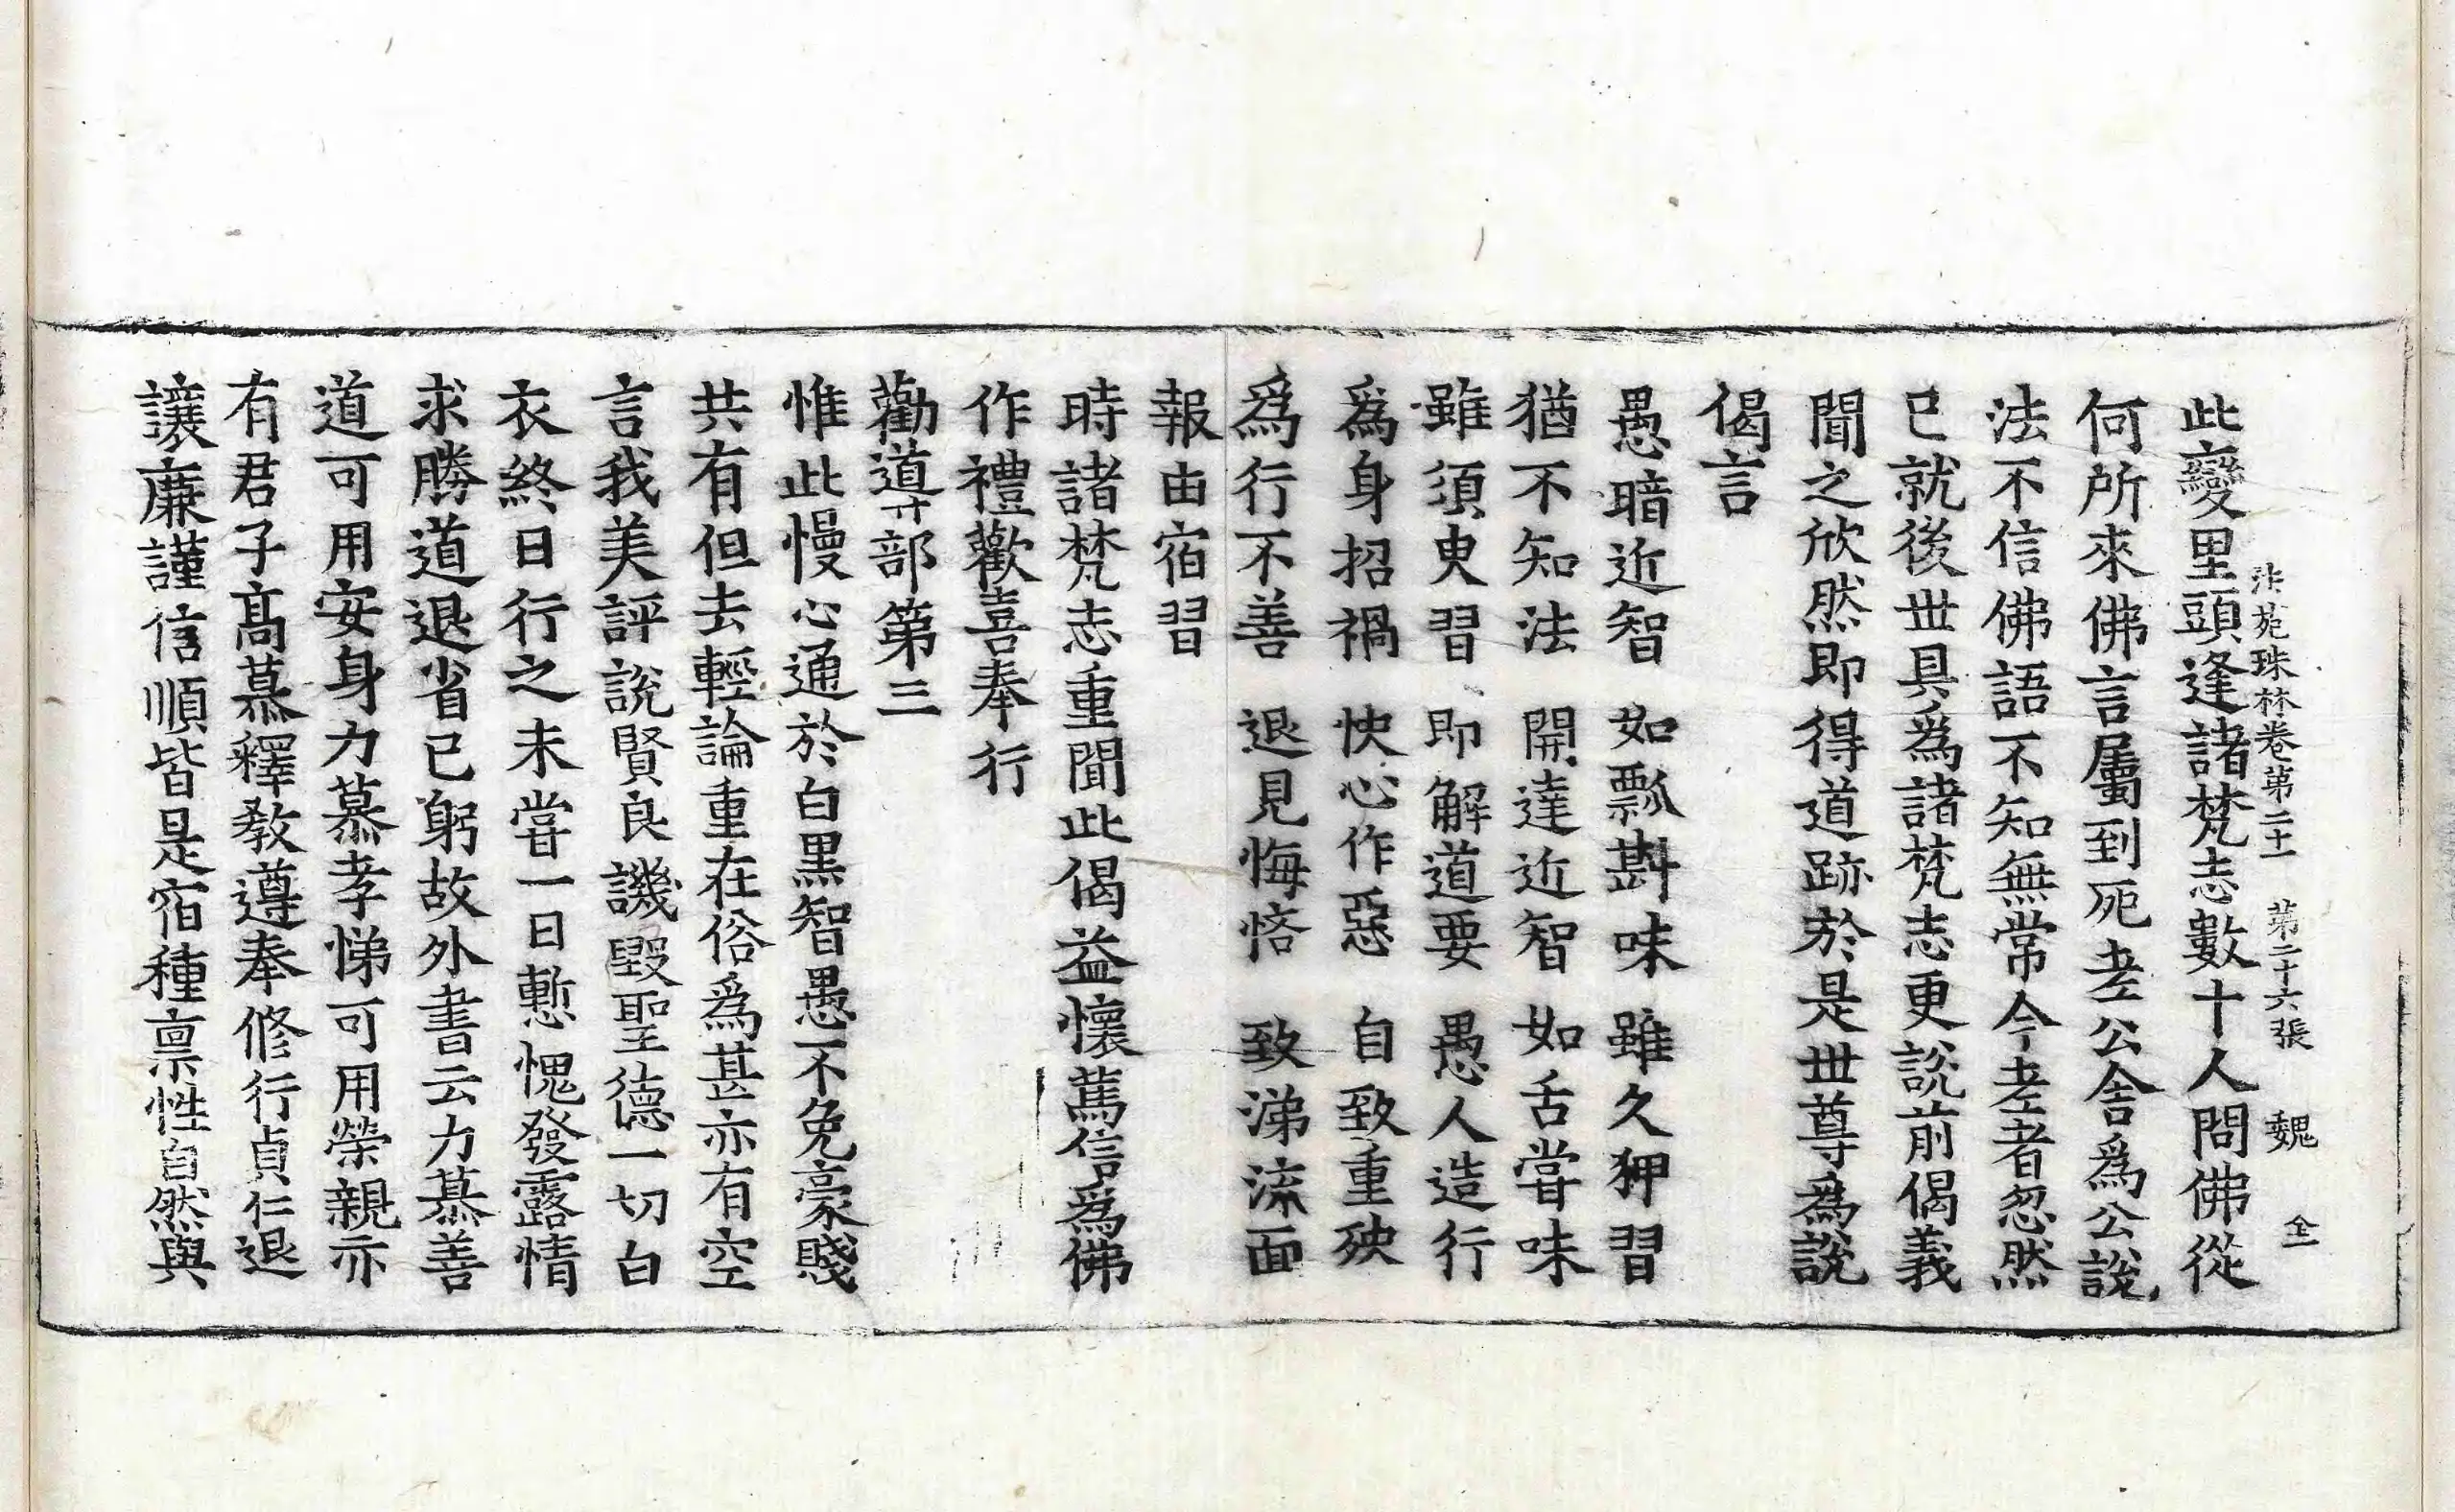 法苑珠林卷第二十一 第二十六張 魏 全
此變里頭逢諸梵志數十人問佛從
何所來佛言屬到死老公舍爲公說
法不信佛語不知無常今老者忽然
已就後世具爲諸梵志更說前偈義
聞之欣然即得道跡於是世尊爲說
偈言
愚暗近智 如瓢斟味 雖久狎習
猶不知法 開達近智 如舌甞味
雖須臾習 即解道要 愚人造行
爲身招禍 快心作惡 自致重殃
爲行不善 退見悔悋 致涕流面
報由宿習
時諸梵志重聞此偈益懷篤信爲佛
作禮歡喜奉行
勸導部第三
惟此慢心通於白黑智愚不免豪賤
共有但去輕論重在俗爲甚亦有空
言我美評說賢良譏毀聖德一切白
衣終日行之未甞一日慙愧發露情
求勝道退省已躬故外書云力慕善
道可用安身力慕孝悌可用榮親亦
有君子高慕釋教遵奉修行貞仁退
讓廉謹信順皆是宿種禀性自然與